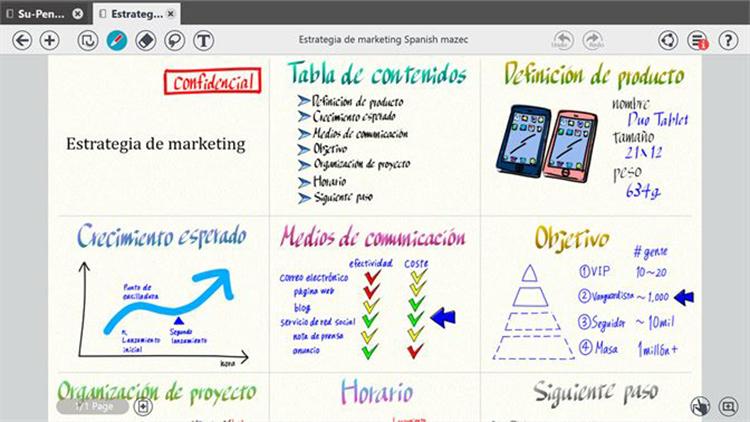 Su-Pen...
Estrateg...
Estrategia de marketing Spanish mazec
Undo
Redo
Confidencial
Estrategia de marketing
Tabla de contenidos
Definición de producto
Crecimiento esperado
Medios de comunicación
Objetivo
Organización de proyecto
Horario
Siguiente paso
Definición de producto
nombre
Duo Tablet
tamaño
21x12
peso
634g
Crecimiento esperado
Punto de
Lanzamiento
inicial
Segundo
lanzamiento
hora
Medios de comunicación
efectividad coste
correo electrónico
página web
blog
servicio de red social
nota de prensa
anuncio
Objetivo
# gente
① VIP 10~20
② Vanguardista ~1,000
③ Seguidor ~10mil
④ Masa 1millón+
Organización de proyecto
Horario
Siguiente paso
1/1 Page